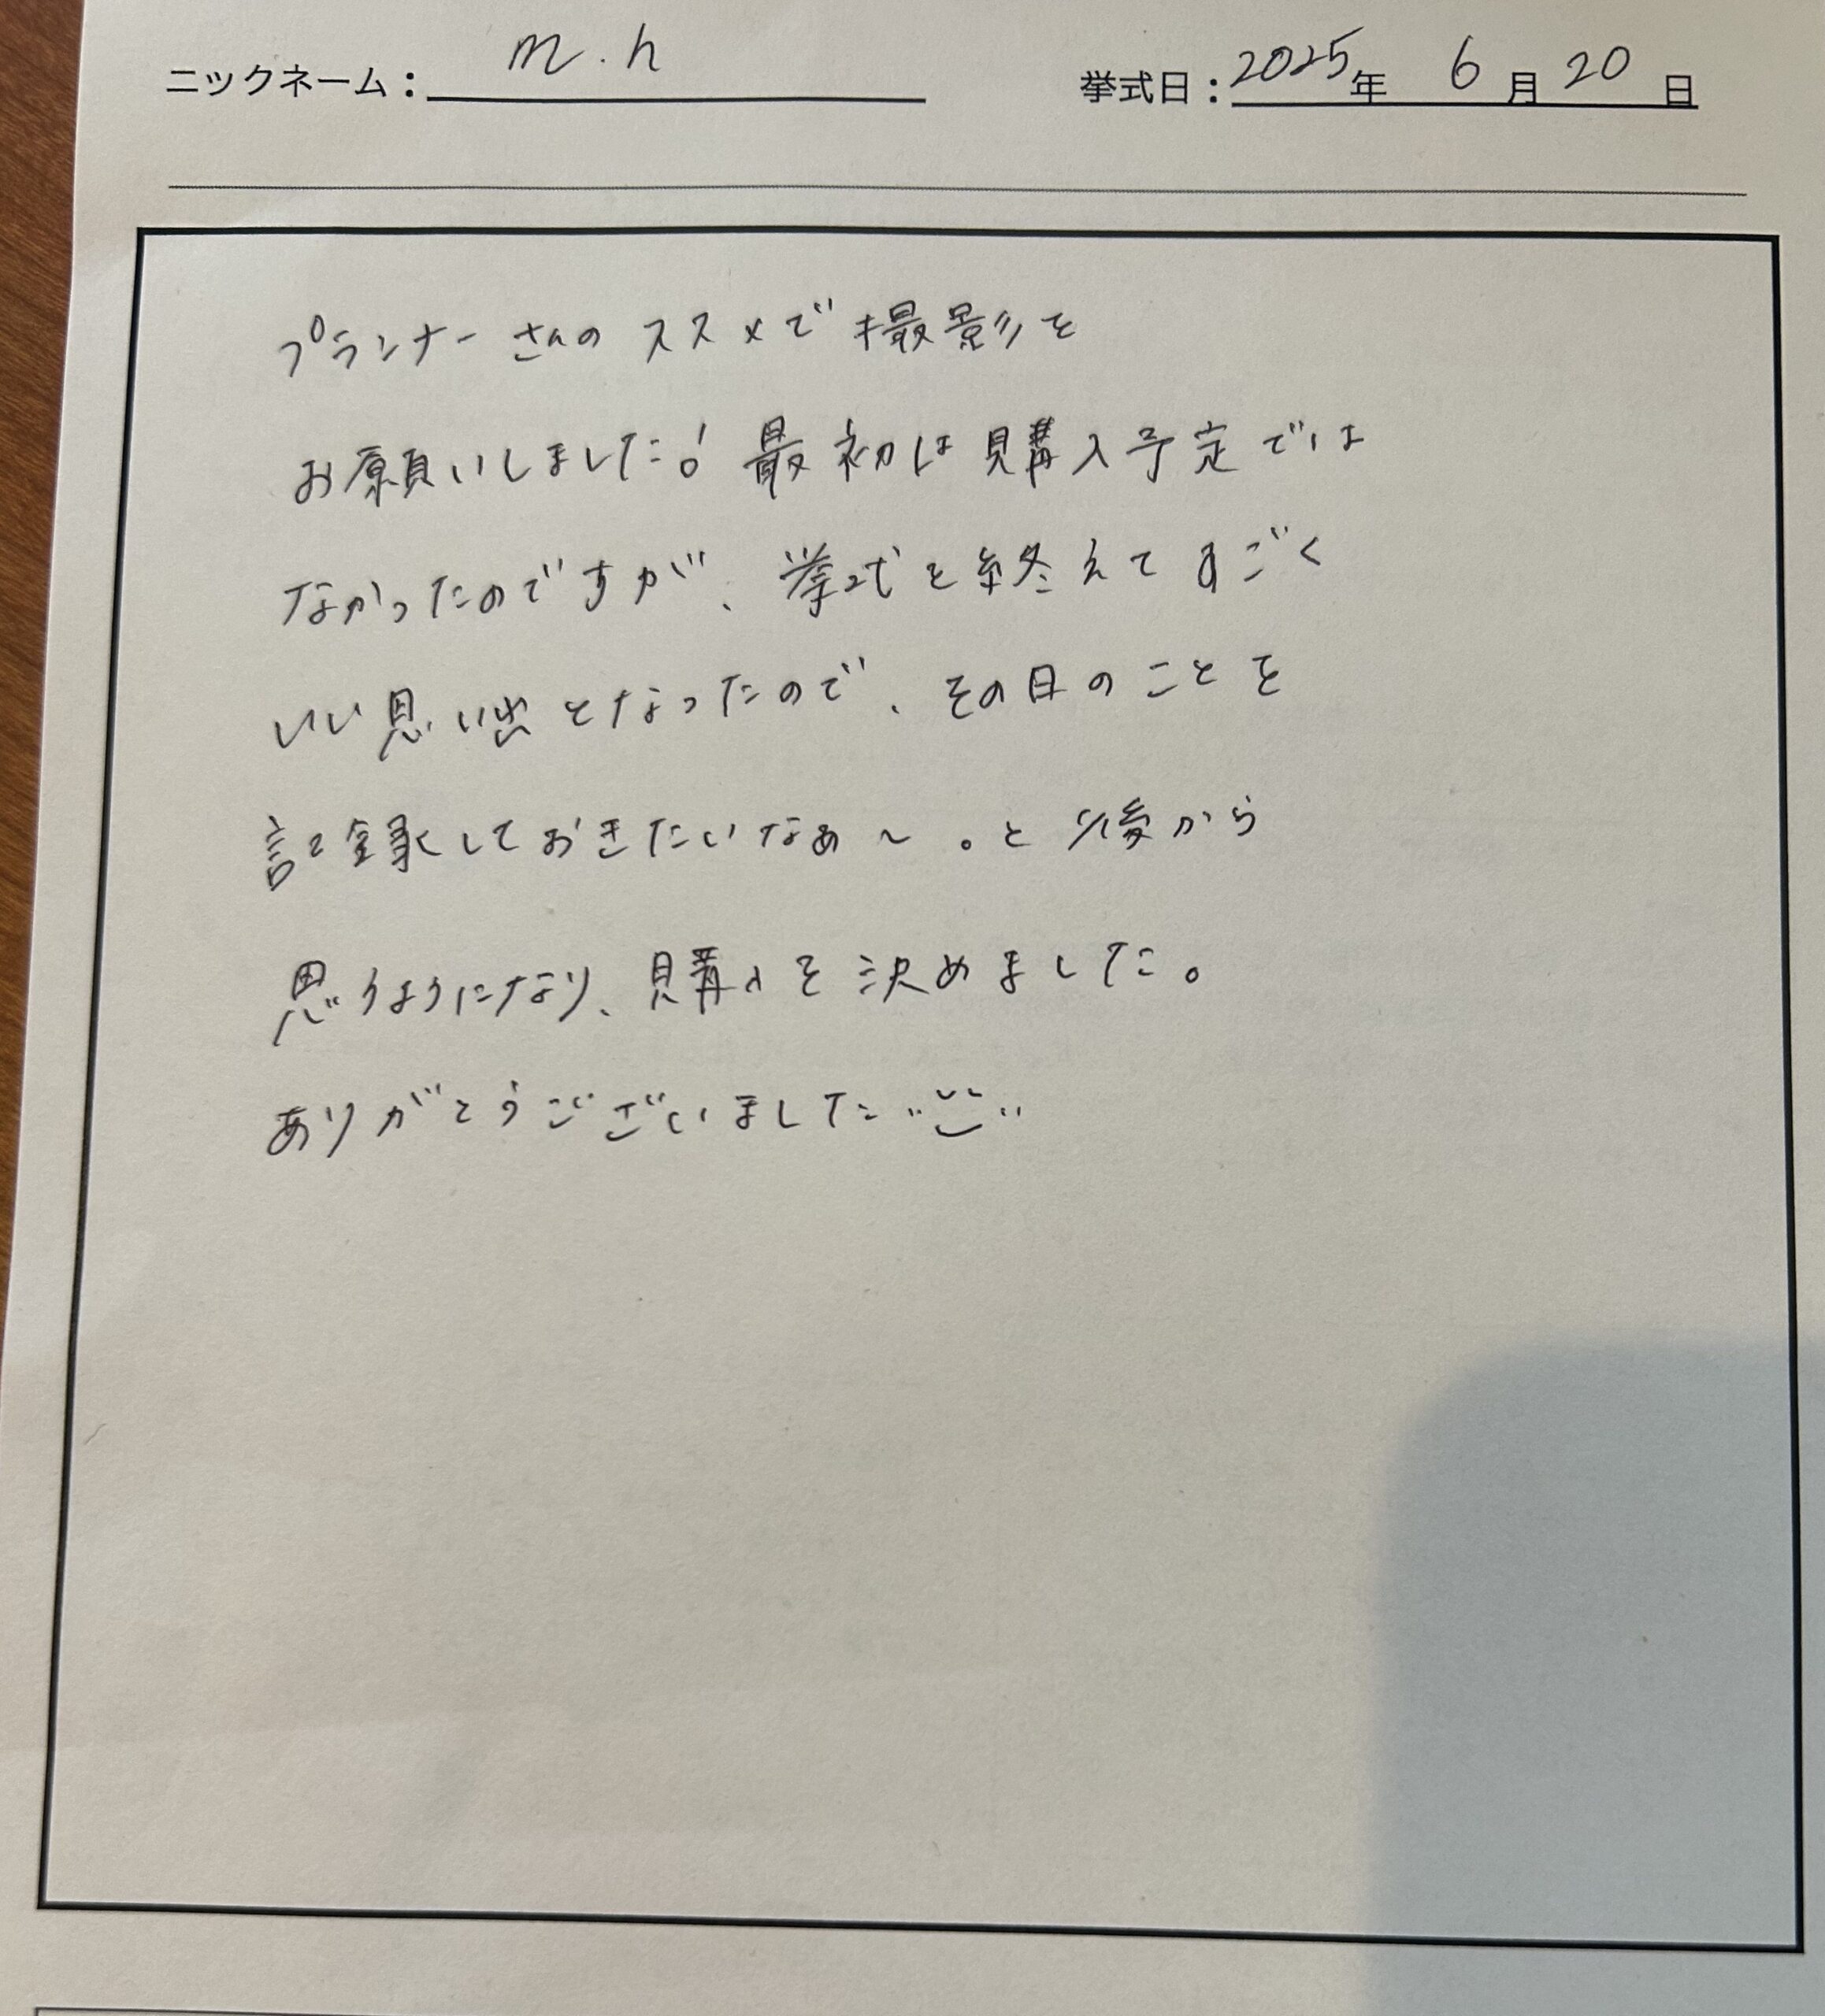 ニックネーム：m.h
挙式日：2025年 6月20日
プランナーさんのススメで撮影を
お願いしました！最初は購入予定では
なかったのですが、挙式を終えてすごく
いい思い出となったので、その日のことを
記録しておきたいなぁ〜。と後から
思うようになり、購入を決めました。
ありがとうございました